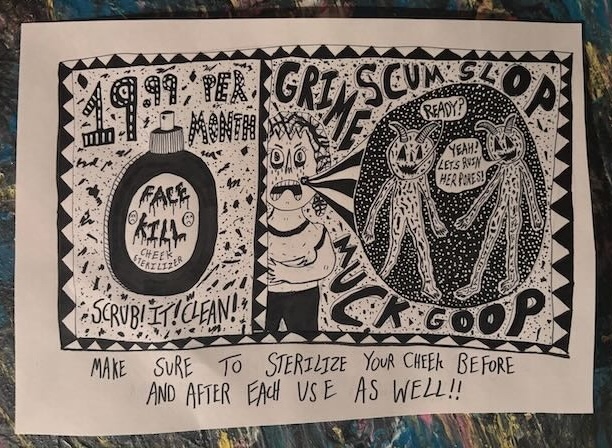 19.99 PER
MONTH
FACE
KILL
CHEEK
STERILIZER
SCRUB! IT! CLEAN!
GRIME SCUM SLOP
READY?
YEAH!
LETS RUIN
HER PORES!
MUCK GOOP
MAKE SURE TO STERILIZE YOUR CHEEK BEFORE
AND AFTER EACH USE AS WELL!!